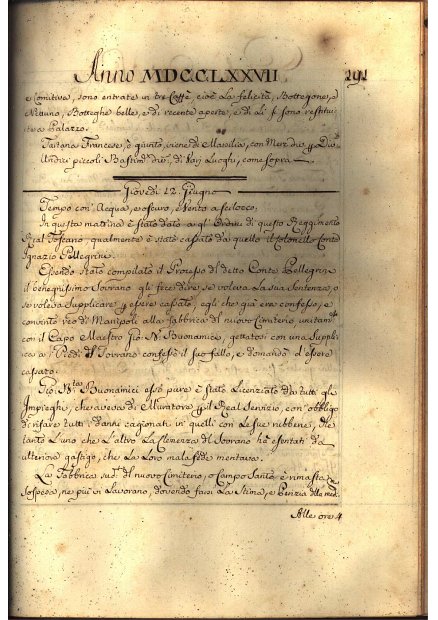 Anno MDCCLXXVII 291
e Comitiva, sono entrate in tre Caffè, cioè La felicità, Bottegone, a
Nettuno, Botteghe belle, e di recente aperte, e di Lì si sono restitui
te a Palazzo.
Tartana Francese, è giunta, viene di Marsilia, con Mer: div:
Undici piccoli Bastim: div: di Varj Luoghi, come sopra
Giovedì 12. Giugno
Tempo con Acqua, e oscuro, Vento a Scilocco,
In questa mattina è stato dato a gl'Ordini di questo Reggimento
Real Toscano, qualmente è stato cassato da quello il Colonello Conte
Ignazio Pellegrini
Essendo stato compilato il Processo d detto Conte Pellegrini
il benignissimo Sovrano gli fece dire se voleva La sua Sentenza, o
se voleva Supplicare p essere cassato, egli che già era confesso, e
convinto reo di Manipoli alla fabbrica d nuovo Cimiterio, unitam:
con il Capo Maestro Gio: Buonamici, gettatosi con una Supplì
ca a Piedi d Sovrano confessò il suo fallo, e domandò d'essere
cassato.
Gio: Buonamici esso pure è stato Licenziato da tutti gl'
Impieghi, che aveva di Muratore p il Real Servizio, con obbligo
di rifare tutti i danni cagionati in quelli con Le sue rubberie, Per
tanto L'uno che L'altro La Clemenza del Sovrano ha esentati da
ulteriore gastigo, che La Loro mala fede meritava.
La Fabbrica d nuovo Cimiterio, o Campo Santo è rimasta
Sospesa, ne più vi Lavorano, dovendo farsi La Stima, e Perizia
Alle ore 4